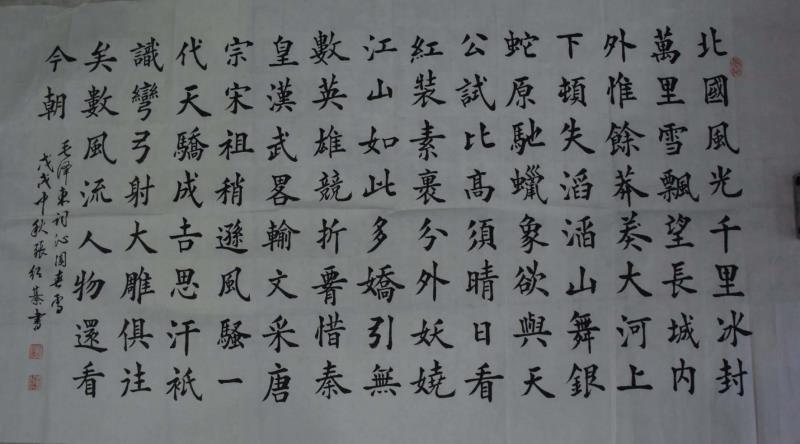 北國風光千里冰封
萬里雪飄望長城内
外惟餘莽莽大河上
下頓失滔滔山舞銀
蛇原馳蠟象欲與天
公試比高須晴日看
紅裝素裹分外妖嬈
江山如此多嬌引無
數英雄競折腰惜秦
皇漢武畧輸文采唐
宗宋祖稍遜風騷一
代天驕成吉思汗祇
識彎弓射大雕俱往
矣數風流人物還看
今朝
毛泽东词沁园春雪
戊戌中秋張書